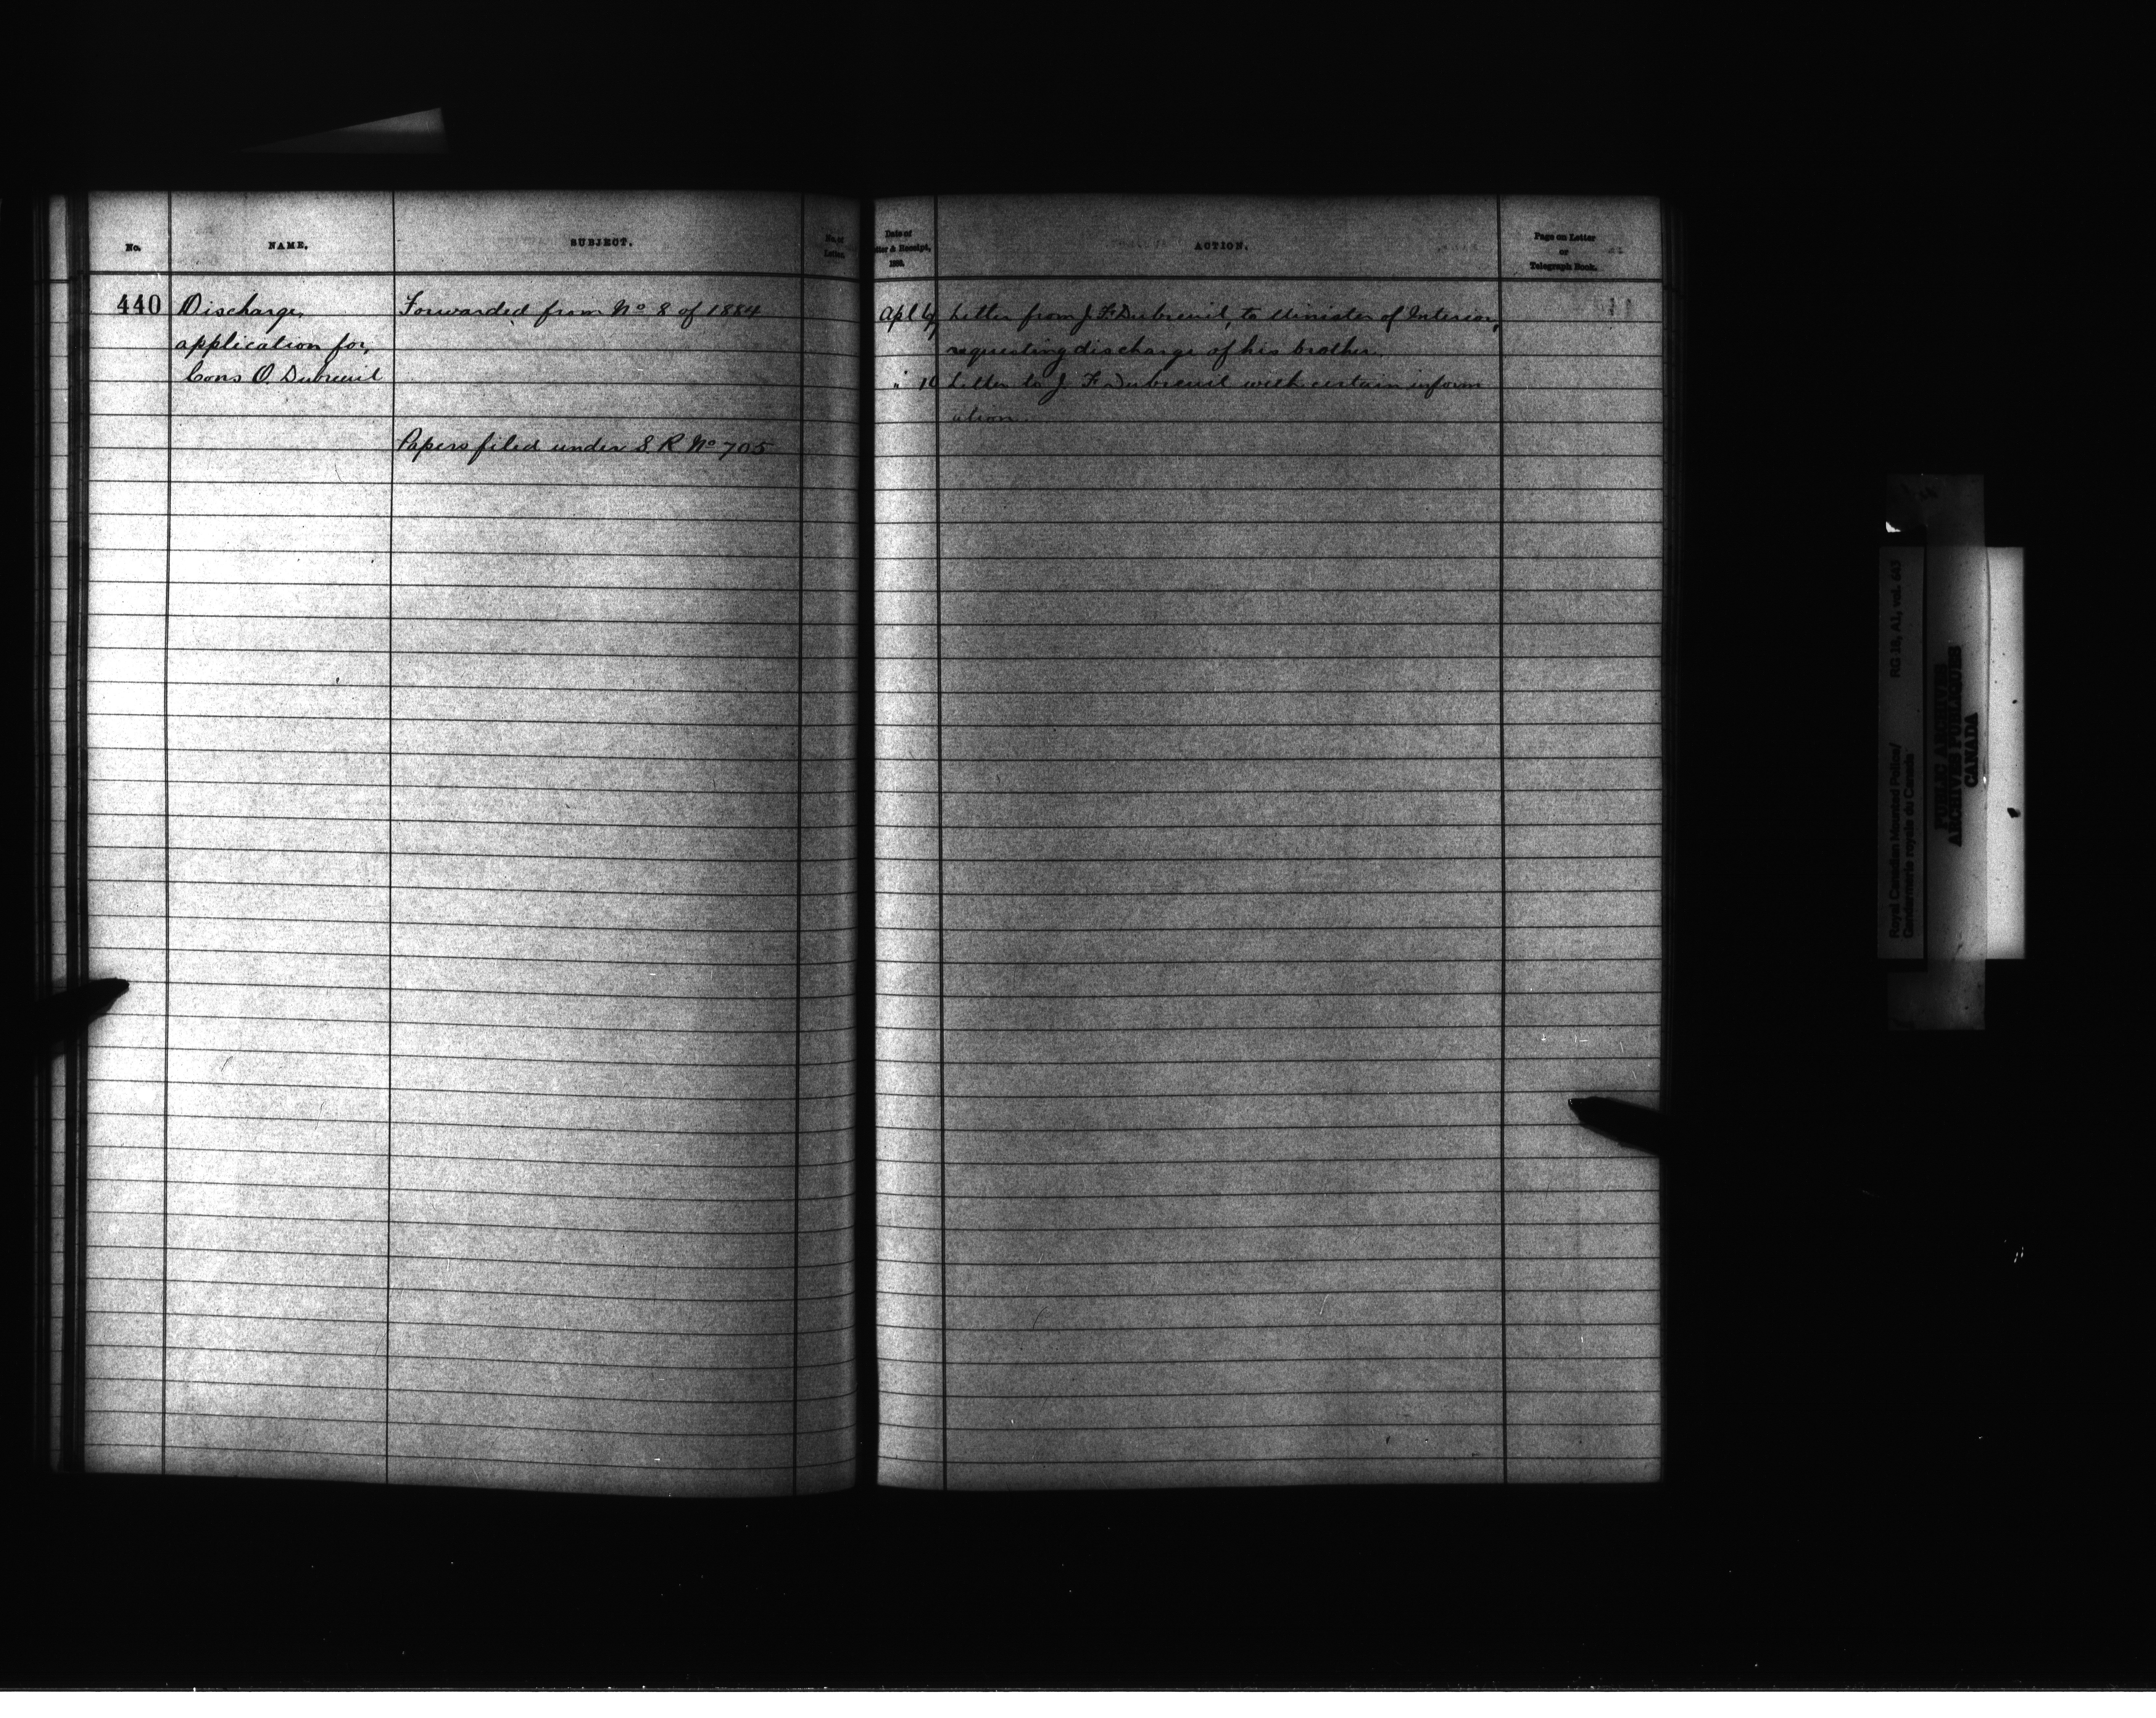 No.
NAME.
SUBJECT.
No. of
Letter.
440
Discharge,
application for,
Cons O. Dubreuil
Forwarded from No 8 of 1884
Papers filed under S. R No 705
Date of
Letter & Receipt,
ACTION.
Page on Letter
or
Telegraph Book.
Apl
Letter from J. F. Dubreuil, to Minister of Interior,
requesting discharge of his brother.
"
Letter to J F Dubreuil with certain inform
ation
Royal Canadian Mounted Police/
Gendarmerie royale du Canada
RG 18, A1, vol. 643
PUBLIC ARCHIVES
ARCHIVES PUBLIQUES
CANADA